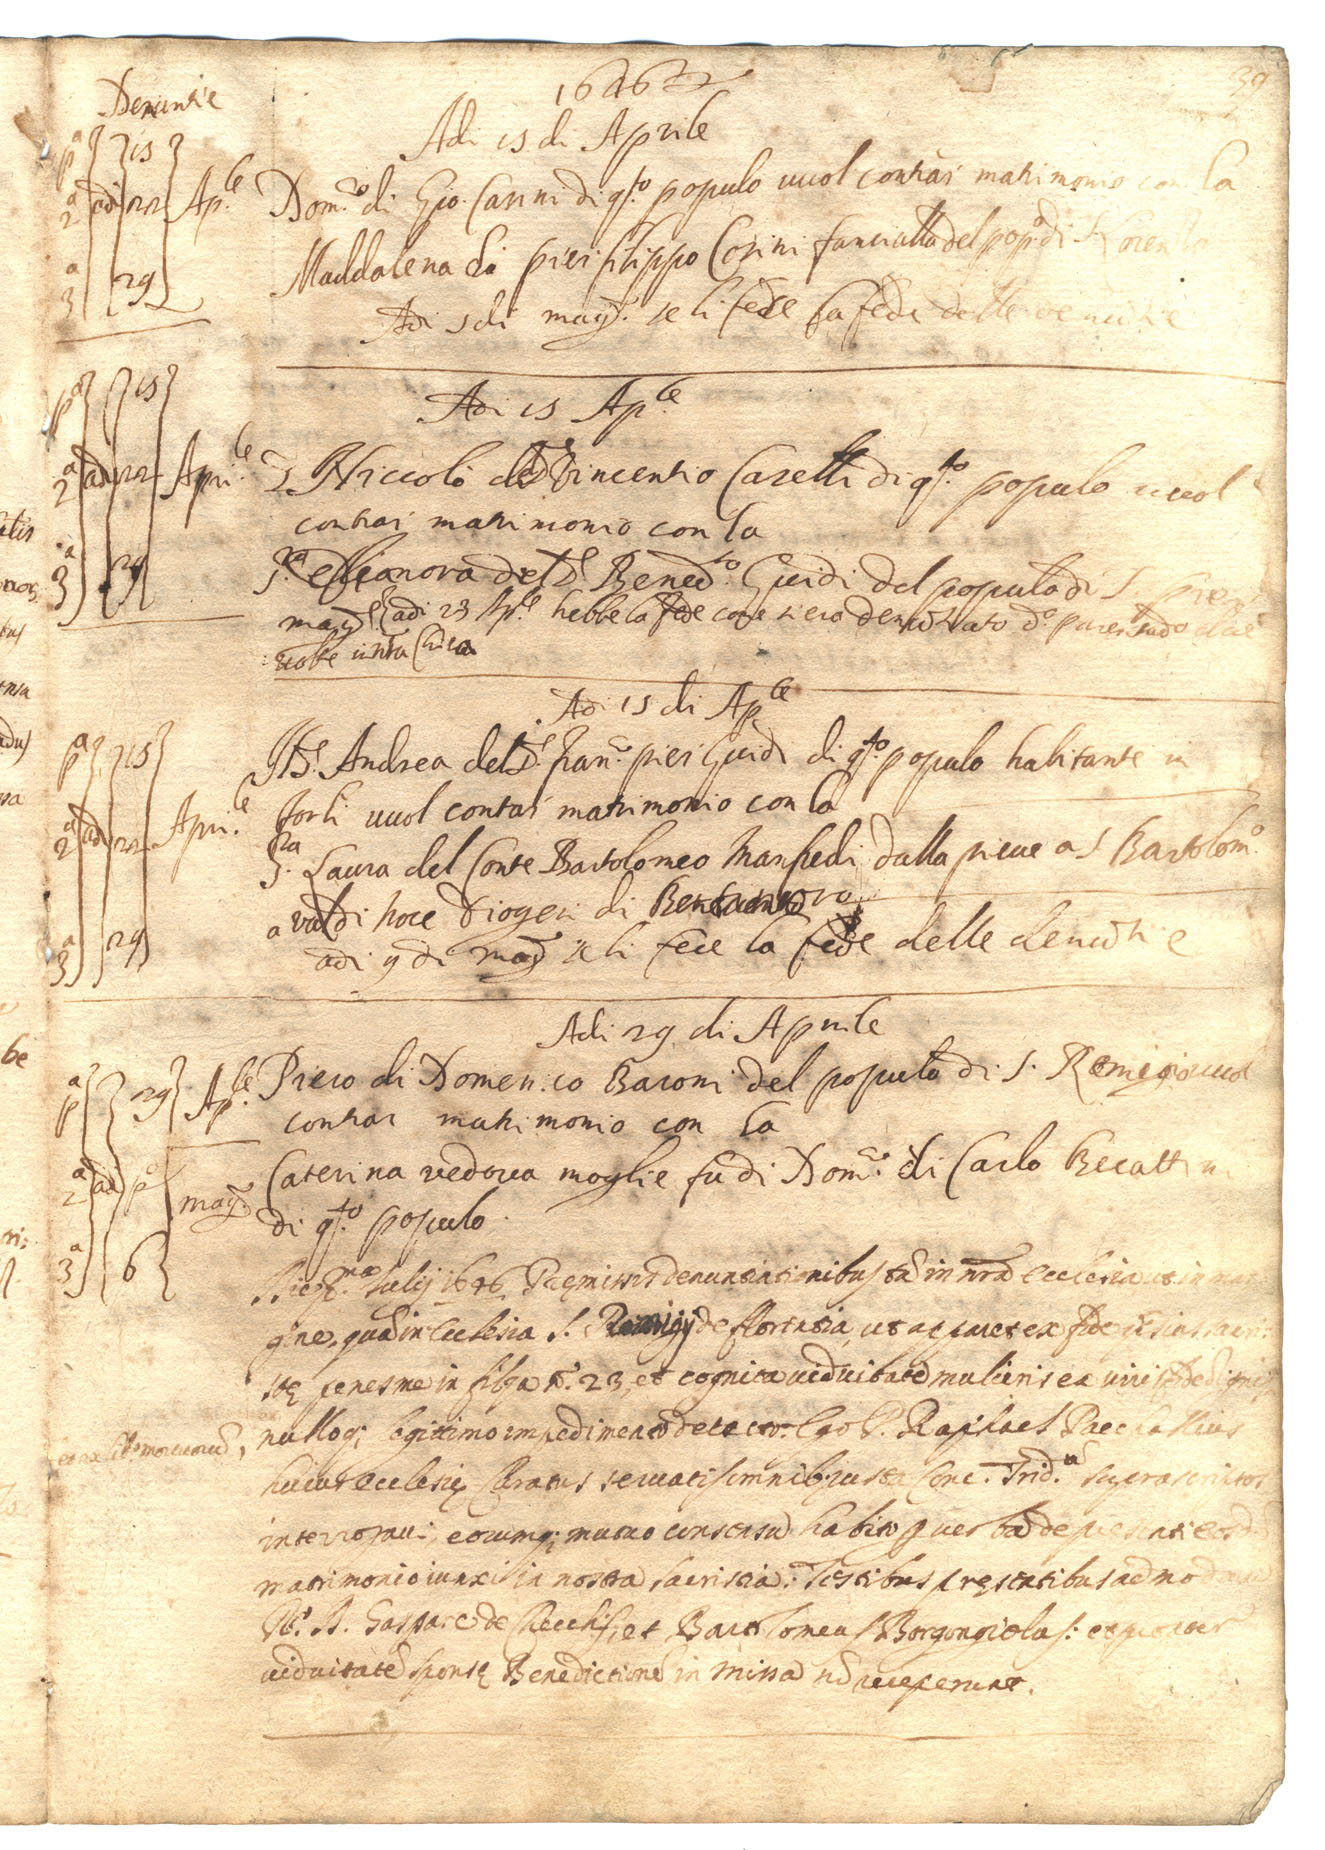 39
1646
Denuntie
Adi 15 di Aprile
pa 15
2a adi 22 Ap.le
3a 29
Dom.co di Gio. Casini di q.to populo vuol contrar matrimonio con la
Maddalena di pier filippo Corini fanciulla del pop.o di S. Loren
Adi 5 di mag.o se li fece la fede delle denuntie
Adi 15 Ap.le
pa 15
2a ad 22 Apri.le
3a 29
Niccolò del S. Vincentio Caretti di q.to populo vuol
contrar matrimonio con la
S.ra Elleonora del S. Bened.to Guidi del populo di S. pier
mag.e adi 23 Ap.le hebbe la fede come si era denuntiato d.o parentado due
volte
Adi 15 di Ap.le
pa 15
2a ad 22 Apri.le
3a 29
Il S. Andrea del S. Fran.co pier Guidi di q.to populo habitante in
forli vuol contrar matrimonio con la
S.ra Laura del Conte Bartolomeo Manfredi dalla pieve a S Bartolom.o
a valdi noce Diogesi di
adi 9 di mag.o se li fece la fede delle denuntie
Adi 29 di Aprile
pa 29 Ap.le
2a ad po mag.o
3a 6
Piero di Domenico Baroni del populo di S. Remigio vuol
contrar matrimonio con la
Caterina vedova moglie fu di Dom.co di Carlo Becattini
di q.to populo
Julij 1646 Praemissis denuntiationibus tam in nra ecclesia ut in mar
gine, quam in Ecclesia S. Remigij de florentia, ut apparet ex fide
penes me in filza n.o 23, et cognita viduitate mulieris ex
nulloq; legittimo impedimento detecto. Ego P. Raphael
huius ecclesię Curatus servatis omnibus iuxta Conc. Trid.m suprascriptos
interrogavi, eorumq; mutuo consensu habito p verba de presenti eosd
matrimonio iunxi in nostra sacristia: Testibus pręsentibus admodum
R. D. Gaspare de Cecchis, et Bartolomeus Borgongiolas: et propter
viduitatem sponsę Benedictionem in Missa nō receperunt.